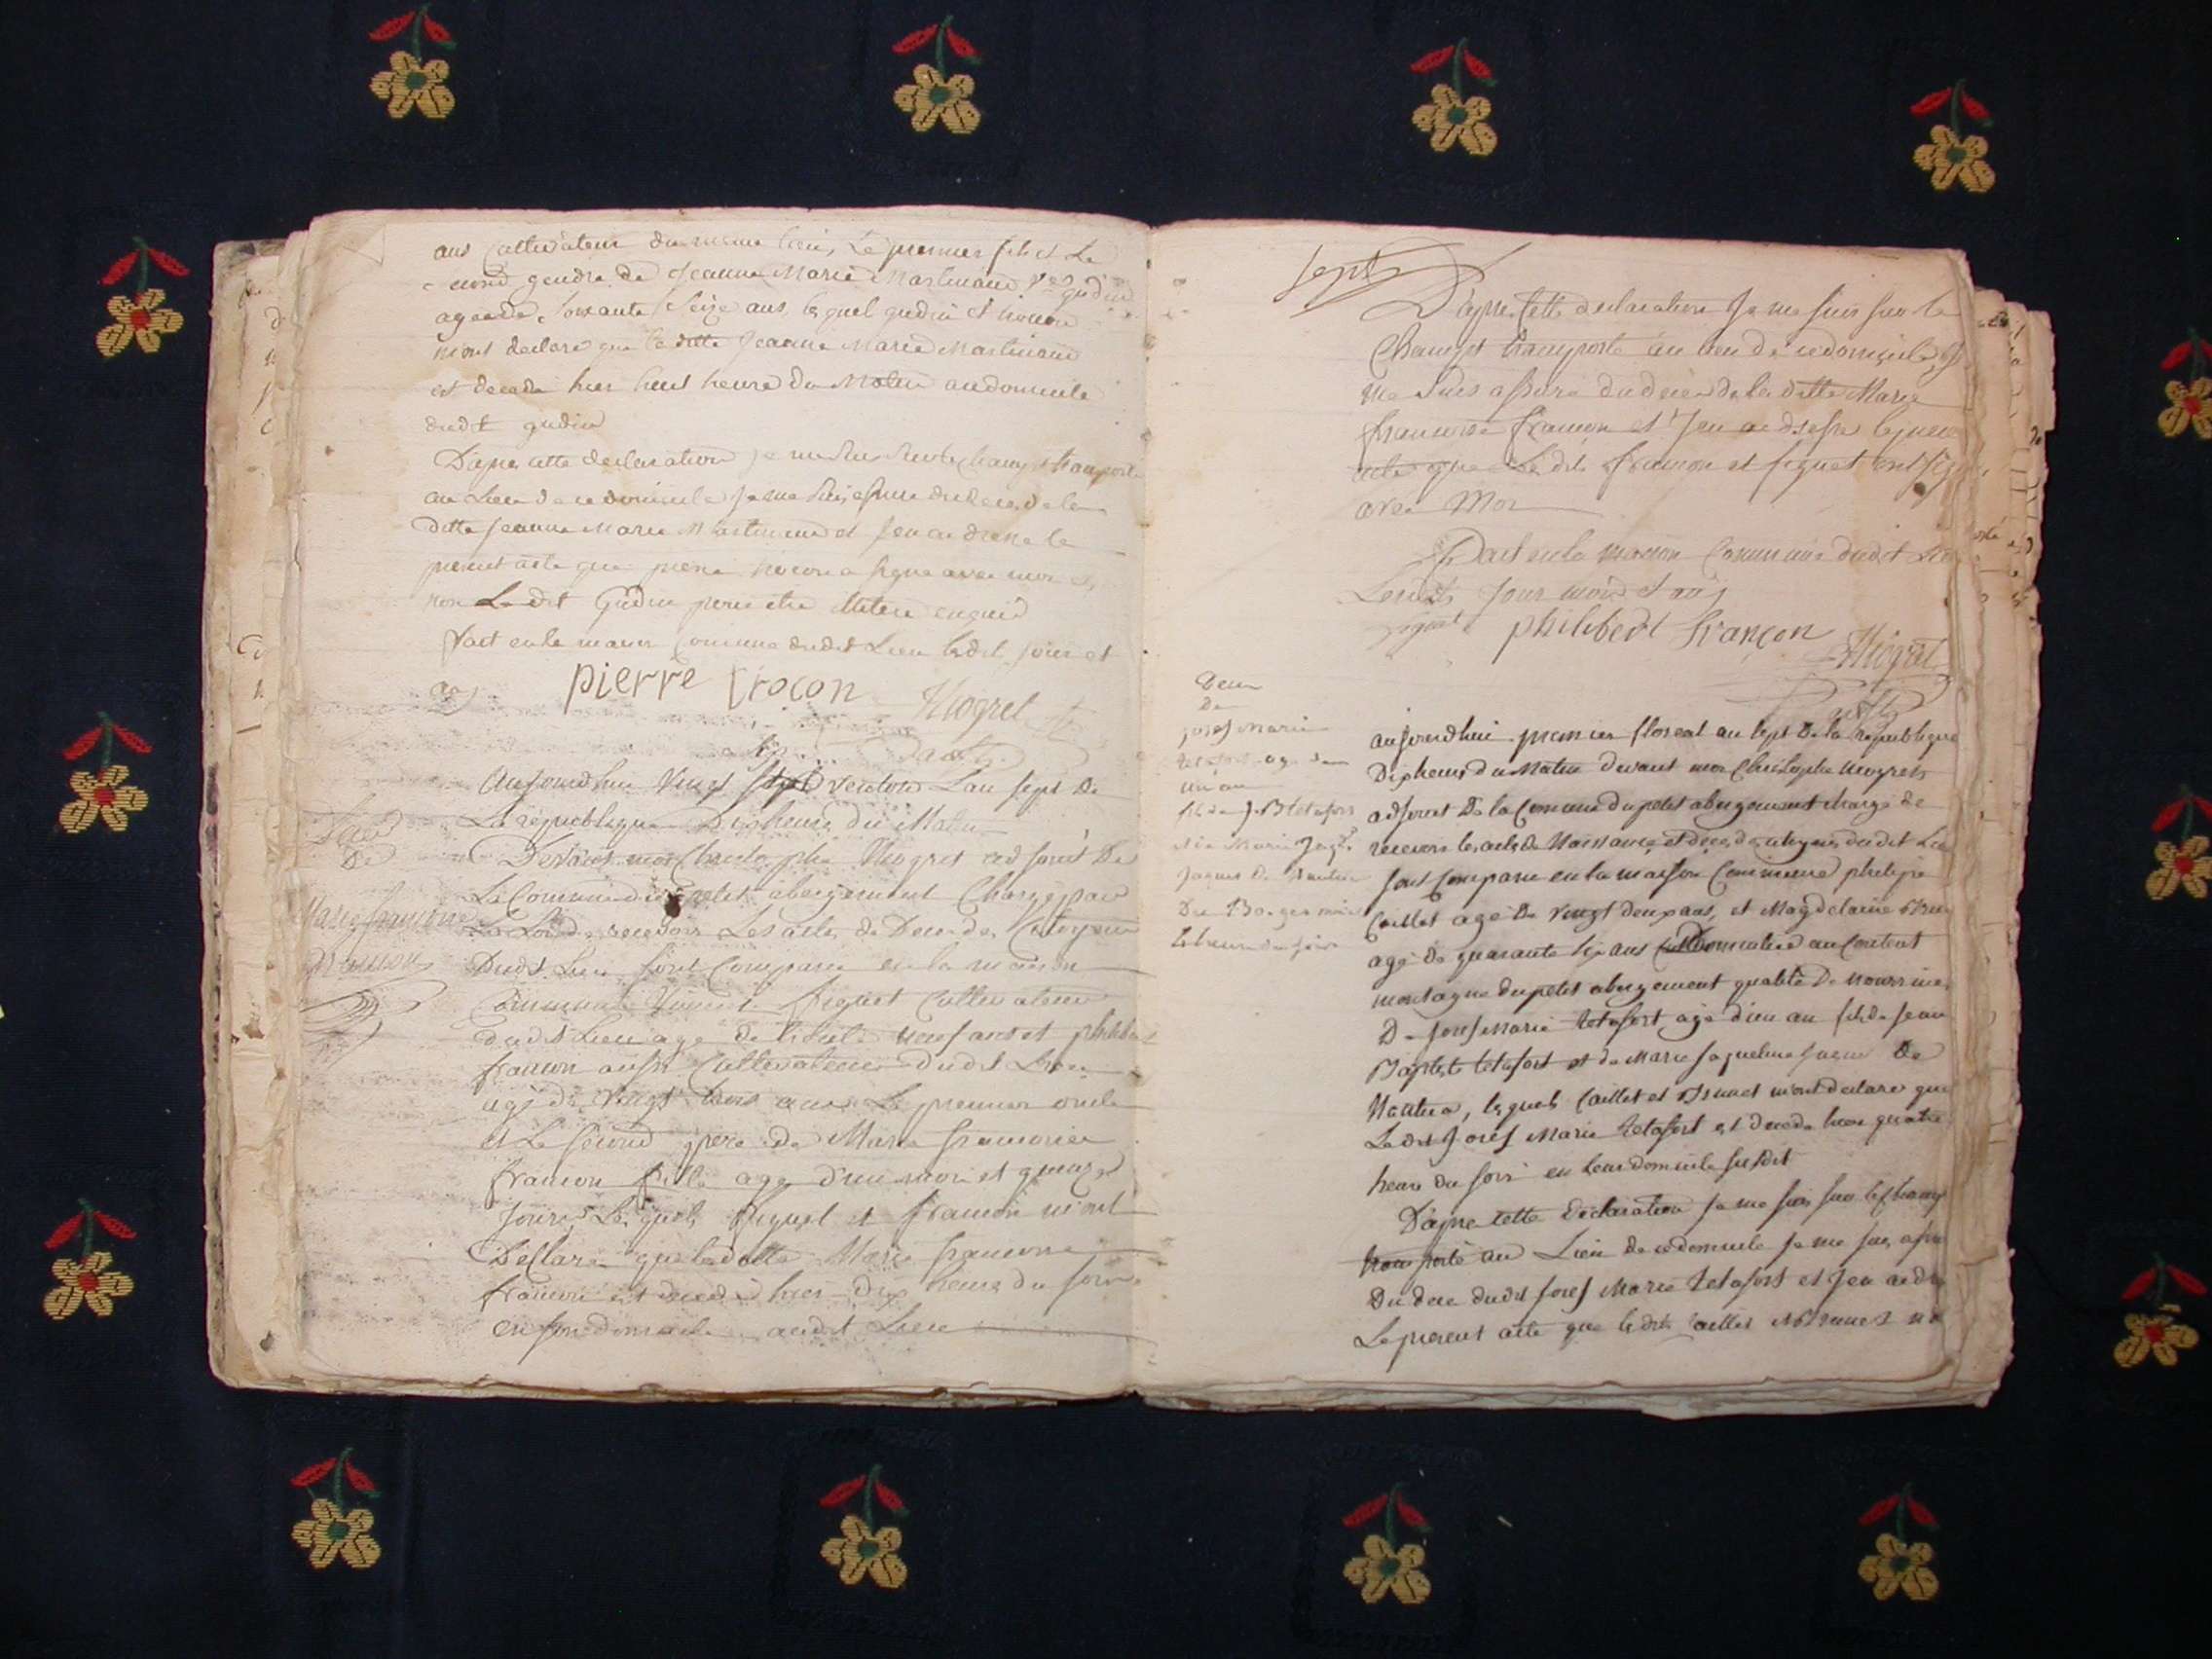 ans Cultivateur du meme lieu, Le premier fils et Le
second gendre de Jeanne Marie Martinand Ve gudin
agee de Soixante Seize ans, lesquel gudin et
m'ont declaré que la ditte Jeanne Marie Martinand
est decede hier huit heure du Matin au domicile
dudit gudin
D'apres cette declaration je me suis sur le champ transporté
au Lieu de ce domicile Je me suis assure du deces de la
ditte Jeanne Marie Martinand et J'en ai dressé le
present acte que pierre a signé avec moi et
non Le dit Gudin pour etre illitere enquis
Fait en la maison Commune dudit Lieu lesdit jour et
an
pierre crocon Niogret
adjoint
Aujourd'hui Vingt Sept ventose L'an Sept De
La republique Dix heures du Matin
Devant moi Christophe Niogret adjoint De
La Commune du petit abergement Chargé par
La Loi de recevoir Les actes de Deces des Citoyens
Dudit Lieu sont Comparu en la maison
Commune figuet Cultivateur
dudit Lieu agé de neuf ans et philibert
francon aussi Cultivateur Dudit Lieu
agé de Vingt trois ans Le premier oncle
et Le second pere de Marie francoise
francon fille agé d'un mois et quinze
Jours Lesquels figuet et francon m'ont
Declaré que ladite Marie francoise
francon est decedé hier Dix heures du soir
en son domicile audit Lieu
De
Marie francoise
francon
sept
D'apres cette declaration Je me suis sur le
Champ transporté au lieu de ce domicile, Je
me suis assuré du deces de la ditte Marie
francoise francon et J'en ai dressé le present
acte que Le dits francon et figuet ont sig
avec Moi
Fait en la maison Commune dudit Lieu
Lesdits Jour mois et an
figuet philibert françon Niogret
adjt
Deces
De
Josef Marie
tetafort agé d'un
un an
fils de J. B tetafort
et de Marie Jaq.
Jaques de Nantua
Du 30 germinal
4 heure du soir
aujourd'hui premier floreal an Sept De la republique
Dix heures du Matin devant moi Christophe Niogret
adjoint De la Commune du petit abergement chargé de
recevoir les actes de Naissance et deces des citoyens dudit Lieu
sont comparu en la maison Commune philipe
Caillet agé De Vingt deux ans, et Magdelaine Brunet
agé de quarante six ans Domicilié au
montagne du petit abergement qualité De nourrice
De Josef Marie tetafort agé d'un an fils de Jean
Baptiste tetafort et de Marie Jaqueline Jaques De
Nantua, lesquels Caillet et Brunet m'ont declaré que
Le dit Josef Marie tetafort est decedé hier quatre
heure du soir en leur domicile susdit
D'apres cette Declaration Je me suis sur le champ
transporté au Lieu de ce domicile Je me suis assuré
Du deces dudit Josef Marie tetafort et J'en ai dr
Le present acte que lesdits Caillet et Brunet n'o